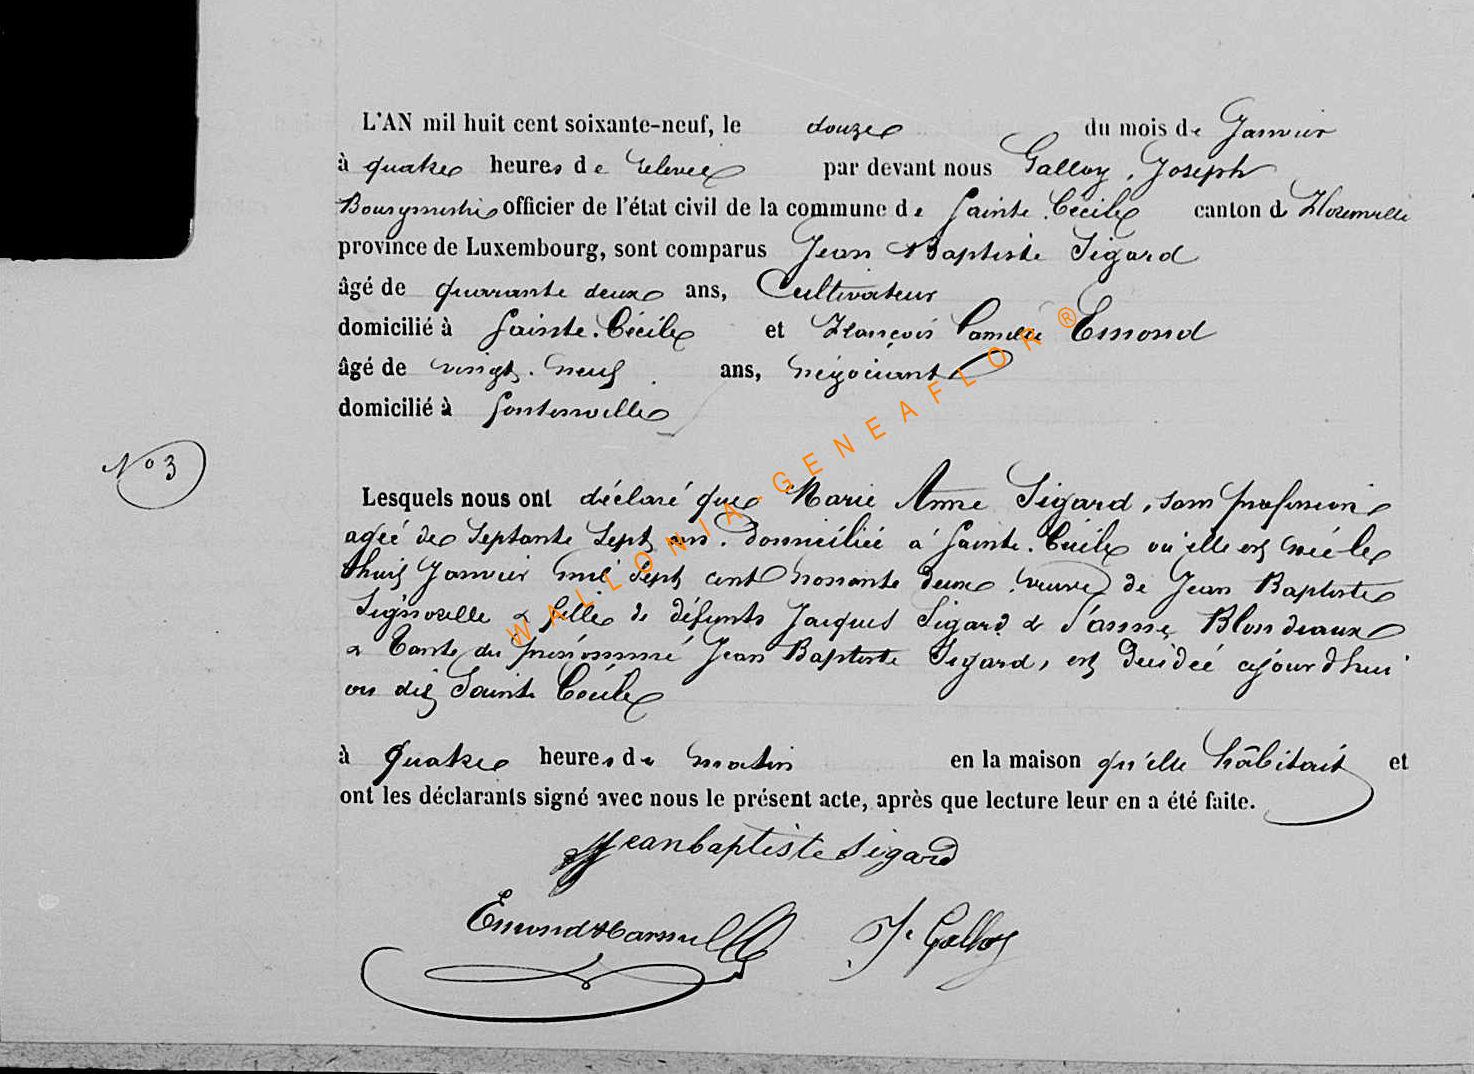 L'AN mil huit cent soixante-neuf, le douze du mois de Janvier
à quatre heures de relevée par devant nous Galloy, Joseph
Bourgmestre officier de l'état civil de la commune de Sainte Cécile canton de Florenville
province de Luxembourg, sont comparus Jean Baptiste Sigard
âgé de quarante deux ans, Cultivateur
domicilié à Sainte-Cécile et François Camille Emond
âgé de vingt-neuf ans, négociant
domicilié à Fontenoille
N° 3
Lesquels nous ont déclaré que Marie Anne Sigard, sans profession
agée de Septante Sept ans, domiciliée à Sainte-Cécile où elle est née le
huit Janvier mil sept cent nonante deux, veuve de Jean Baptiste
Signorelle & fille de défunts Jacques Sigard & d'anne Blondeaux
& tante du prénommé Jean Baptiste Sigard, est décédée ajourd'hui
au dit Sainte Cécile
à quatre heures du matin en la maison qu'elle hâbitait et
ont les déclarants signé avec nous le présent acte, après que lecture leur en a été faite.
Jeanbaptiste Sigard
Emond J. Galloy
WALLONIA-GENEAFLOR ®